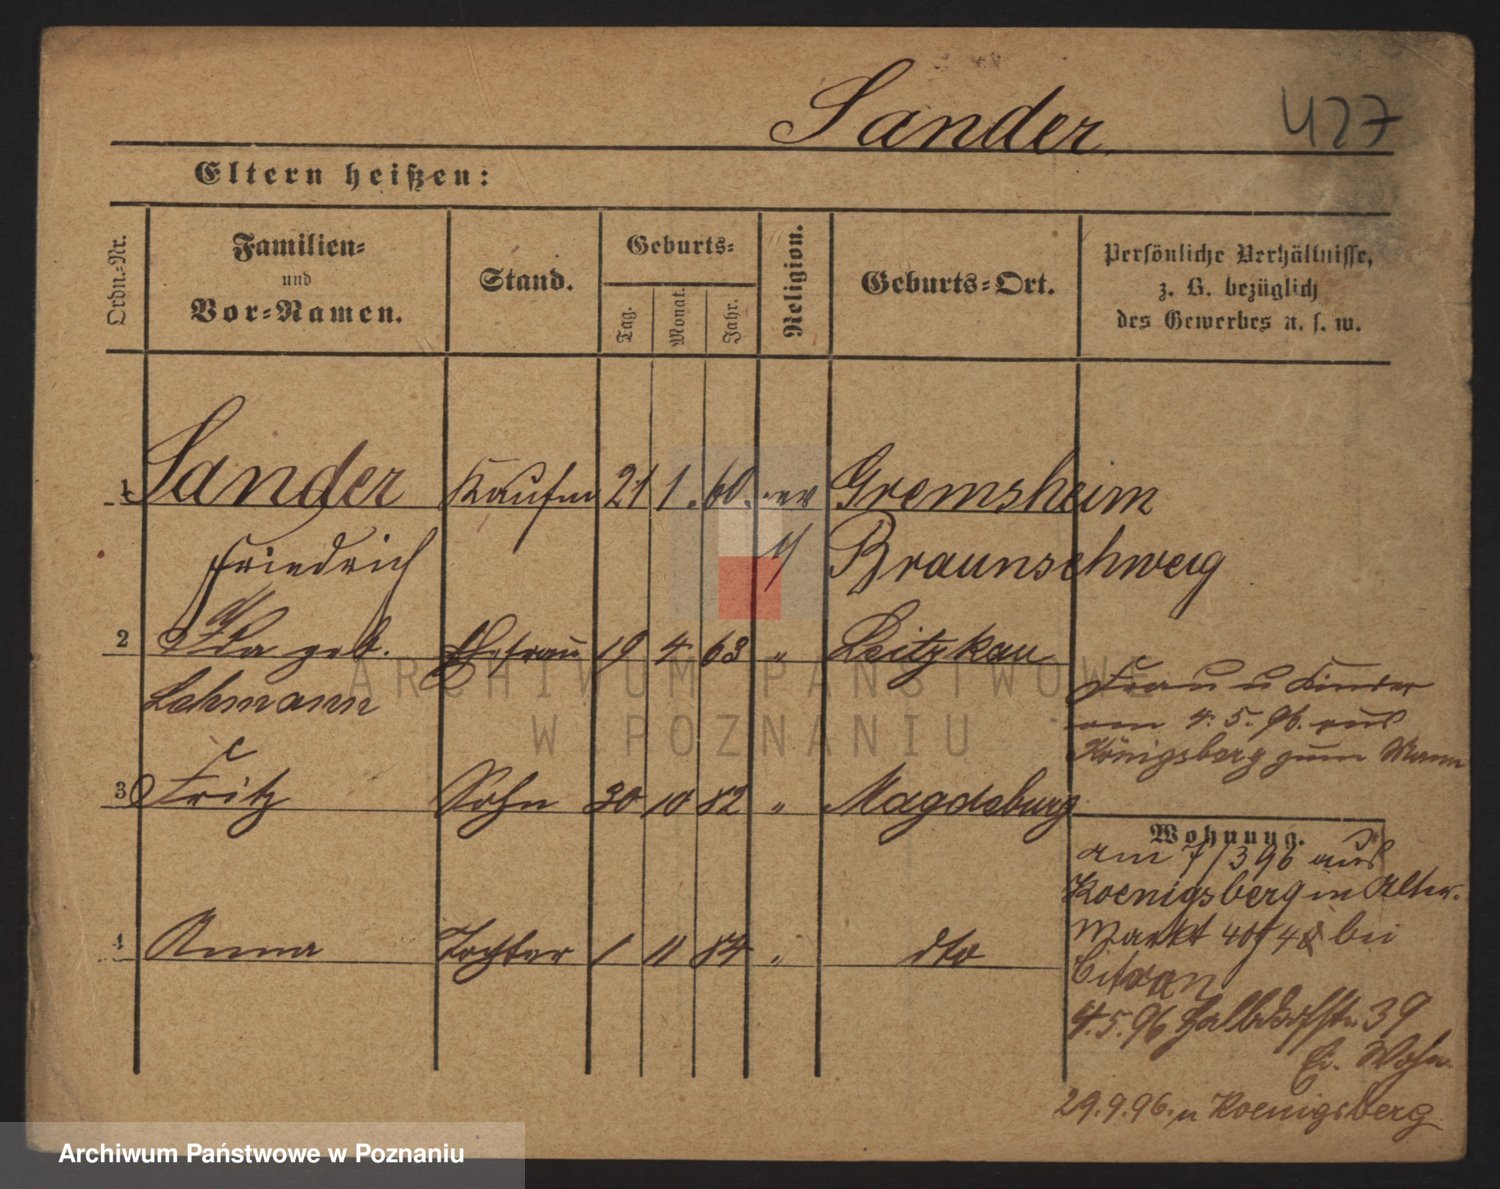 Sander
427
Eltern heißen:
Ordn.-Nr.
Familien-
und
Vor-Namen.
Stand.
Geburts-
Tag.
Monat.
Jahr.
Religion.
Geburts-Ort.
Persönliche Verhältnisse,
z. B. bezüglich
des Gewerbes u. s. w.
1 Sander Kaufm 21 1. 60. ev Gremsheim
Friedrich Braunschweig
2 Ida geb. Ehefrau 19 4 63 " Leitzkau
Lehmann
Frau u Kinder
am 4. 5. 96. aus
Königsberg zum Mann
3 Fritz Sohn 30 10 82 " Magdeburg
Wohnung.
am 7/3 96 aus
Koenigsberg in Alter.
Markt 40/48 bei
4 Anna Tochter 1 11 84 " dto
4.5.96 Halbdorfstr. 39
Ei. Wohn.
29.9.96. n Koenigsberg
ARCHIWUM PAŃSTWOWE
W POZNANIU
Archiwum Państwowe w Poznaniu